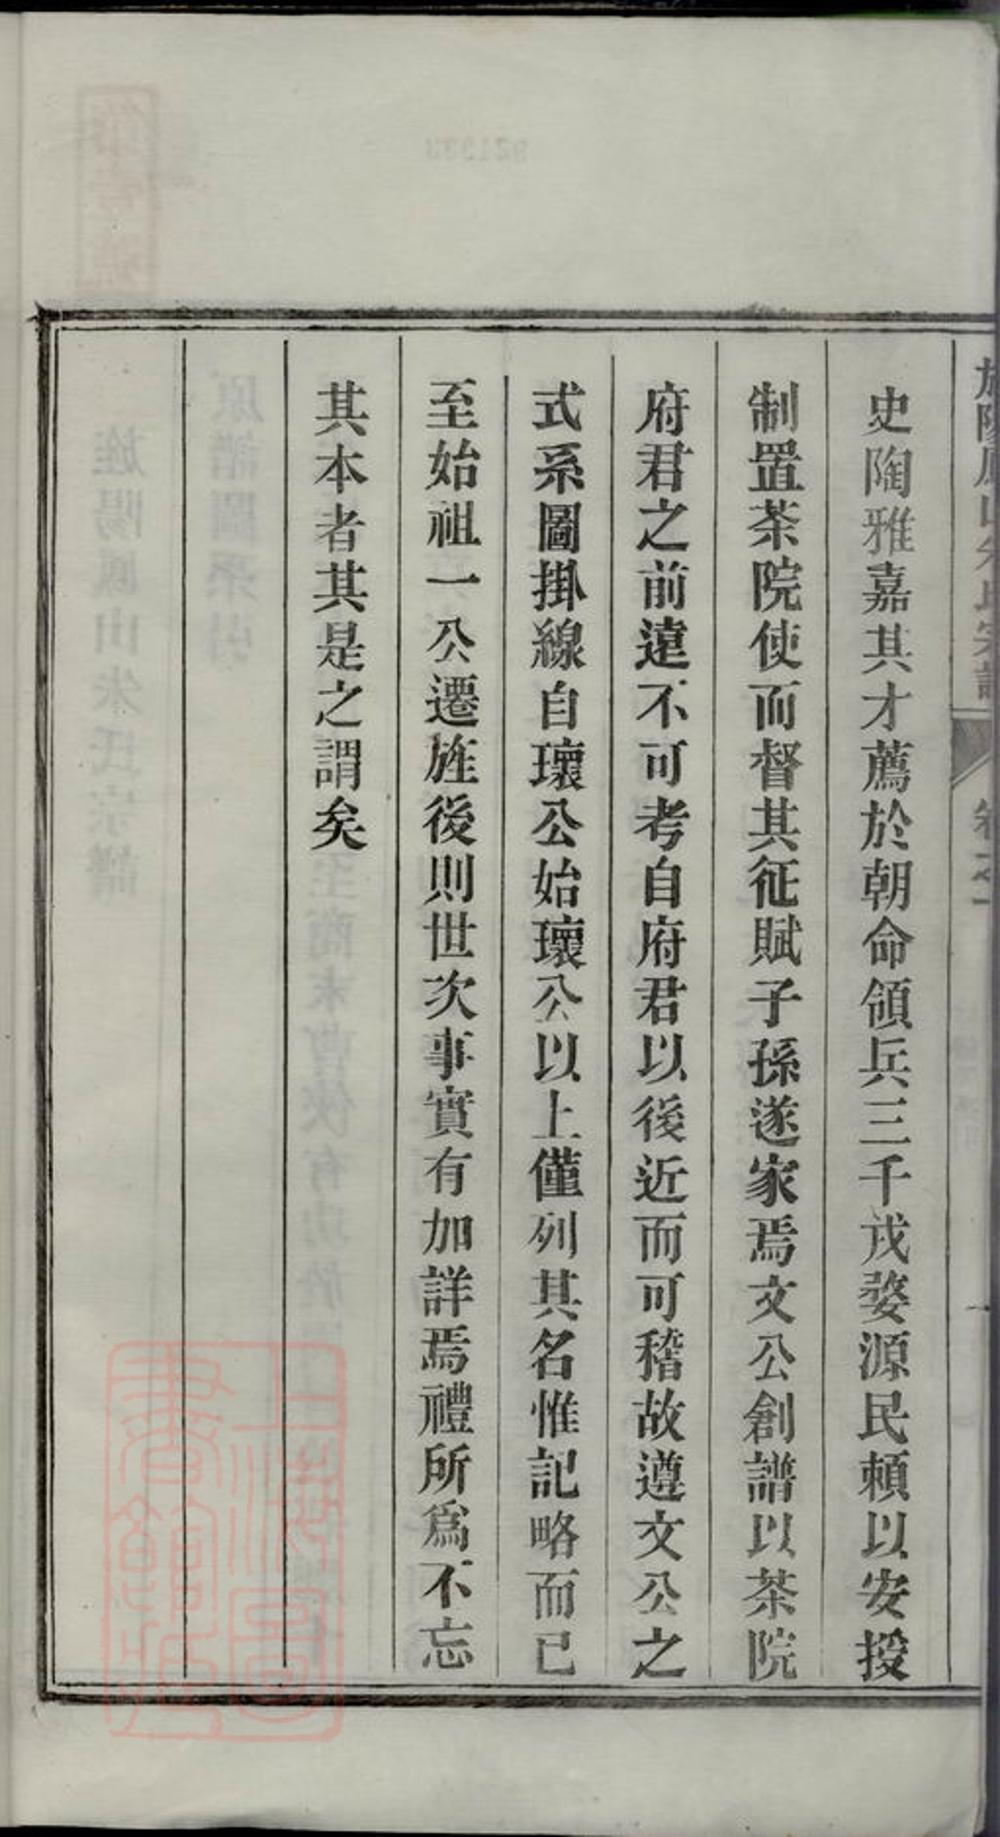 史陶雅嘉其才薦於朝命領兵三千戍婺源民賴以安授
制置茶院使而督其征賦子孫遂家焉文公創譜以茶院
府君之前遠不可考自府君以後近而可稽故遵文公之
式系圖掛線自瓌公始瓌公以上僅列其名惟記略而已
至始祖一公遷旌後則世次事實有加詳焉禮所為不忘
其本者其是之謂矣
上海圖書館藏